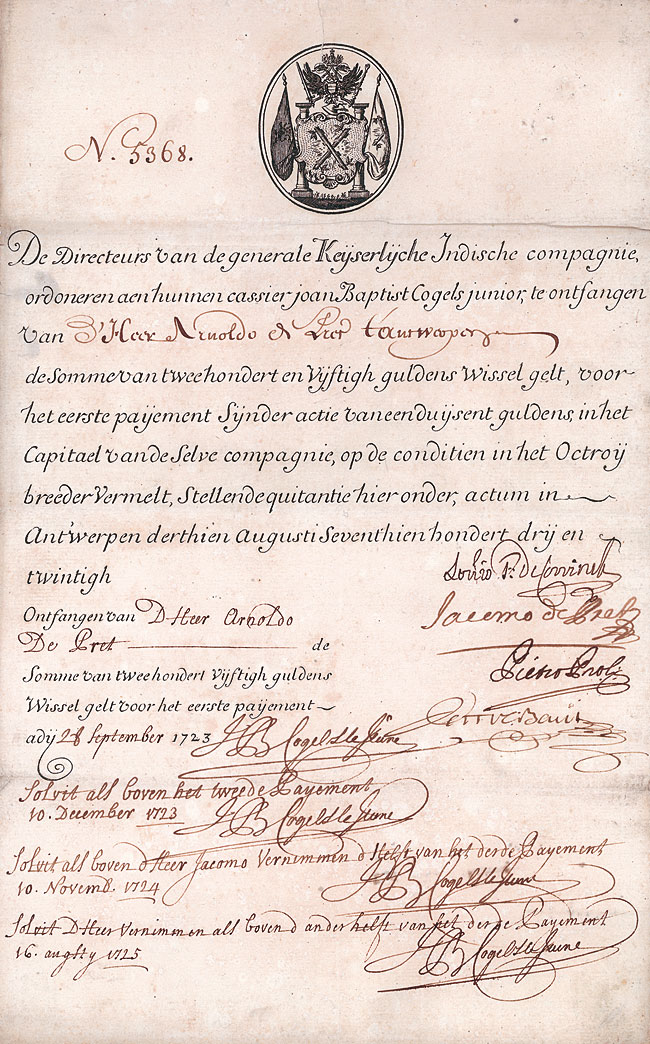 N. 5368.
De Directeurs van de generale Keijserlijcke Indische compagnie,
ordoneren aen hunnen cassier joan Baptist Cogels junior, te ontfangen
van D'Heer Arnoldo de Pret t'antwerpen
de Somme van twee hondert en Vijftigh guldens Wissel gelt, voor
het eerste paijement Sijnder actie van een duijsent guldens, in het
Capitael van de Selve compagnie, op de conditien in het Octroij
breeder Vermelt, Stellende quitantie hier onder, actum in
Antwerpen derthien Augusti Seventhien hondert drij en
twintigh
Jacomo de Pret
Ontfangen van D Heer Arnoldo
De Pret de
Somme van twee hondert Vijftigh guldens
Wissel gelt voor het eerste paijement
adij 28 September 1723 JB Cogels le Jeune
Pietro Proli
Solvit als boven het tweede Payement
10. December 1723 JB Cogels le Jeune
Solvit als boven d Heer Jacomo Vernimmen d Helft van het derde Payement
10. Novemb. 1724 JB Cogels le Jeune
Solvit D Heer Vernimmen als boven d ander helft van het derde Payement
16. augsty 1725 JB Cogels le Jeune